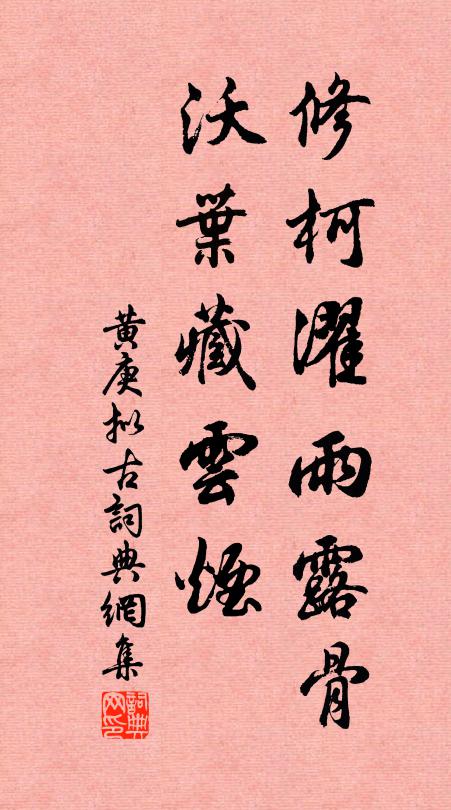 修柯濯雨露骨
沃葉藏雲煙
黄庚拟古詞典網集
詞典网印